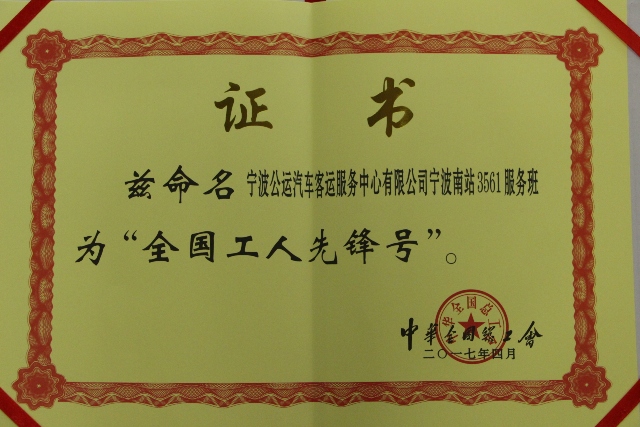 证书
兹命名宁波公运汽车客运服务中心有限公司宁波南站3561服务班
为“全国工人先锋号”。
中华全国总工会
二〇一七年四月